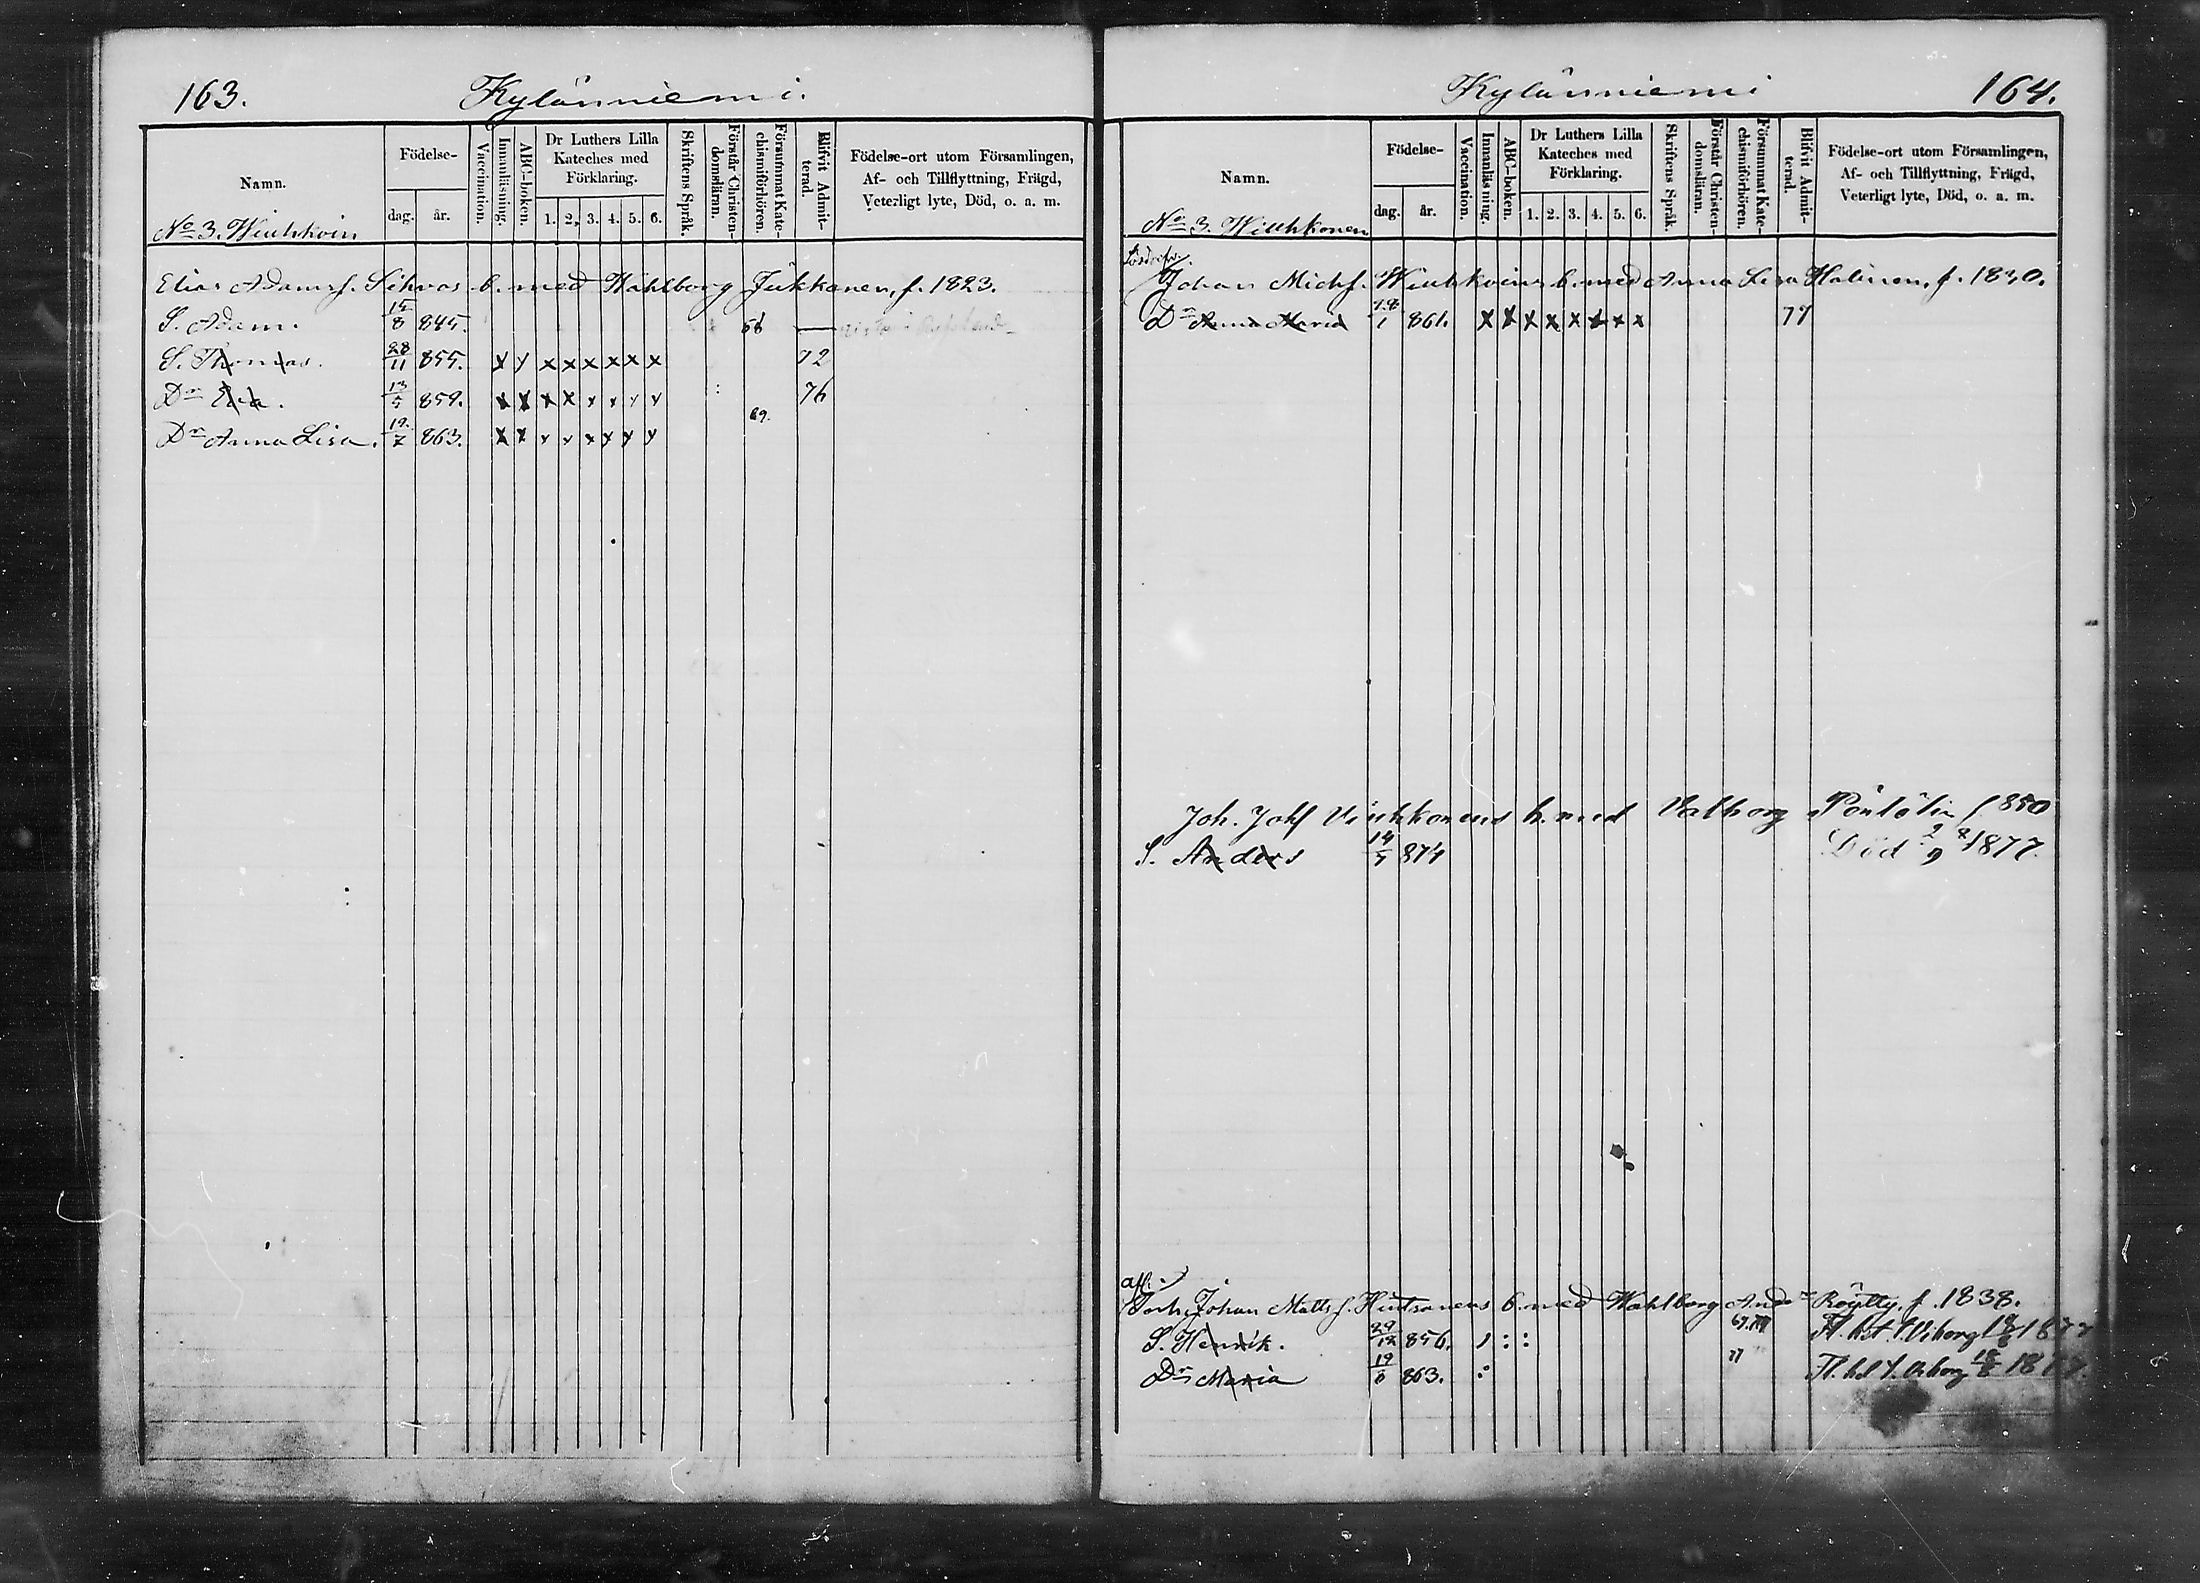 163.
Kylänniemi.
Namn.
Födelse-
dag.
år.
Vaccination.
Innanläsning.
ABC-boken.
Dr Luthers Lilla
Kateches med
Förklaring.
1. 2. 3. 4. 5. 6.
Skriftens Språk.
Förstår Christen-
domsläran.
Försummat Kate-
chismiförhören.
Blifvit Admit-
terad.
Födelse-ort utom Församlingen,
Af- och Tillflyttning, Frägd,
Veterligt lyte, Död, o. a. m.
No 3. Wiuhkoin
Elias Adamsf. Sihvos b. med Wahlborg Jukkanen, f. 1823.
S. Adam. 15/8 845. 56 —
S. Thomas. 28/11 855. x x x x x x x x 72
Dr Eva. 13/5 859. x x x x x x x x 76
69.
Dr Anna Lisa. 19/7 863. x x x x x x x x
Kylänniemi
164.
Namn.
Födelse-
dag.
år.
Vaccination.
Innanläsning.
ABC-boken.
Dr Luthers Lilla
Kateches med
Förklaring.
1. 2. 3. 4. 5. 6.
Skriftens Språk.
Förstår Christen-
domsläran.
Försummat Kate-
chismiförhören.
Blifvit Admit-
terad.
Födelse-ort utom Församlingen,
Af- och Tillflyttning, Frägd,
Veterligt lyte, Död, o. a. m.
No 3. Wiuhkonen
Johan Michf. Wiuhkoins b. med Anna Lisa Halinen, f. 1830.
Dr Anna Maria 18/1 861. x x x x x x x x 77
Joh. Johf Viuhkonens b. med Valborg f. 850
S. Anders 14/5 874 Död 2/9 1877.
afl.
Torp. Johan Mattsf. Hintsanens b. med Wahlborg Andr Röytty. f. 1838.
S. Henrik. 29/12 856. Fl. bet. t. Viborg 18/8 1877
Dr Maria 19/6 863. 77 Fl. bet. t. Viborg 18/8